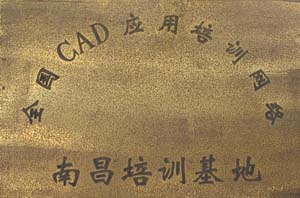 全国CAD应用培训网络
南昌培训基地